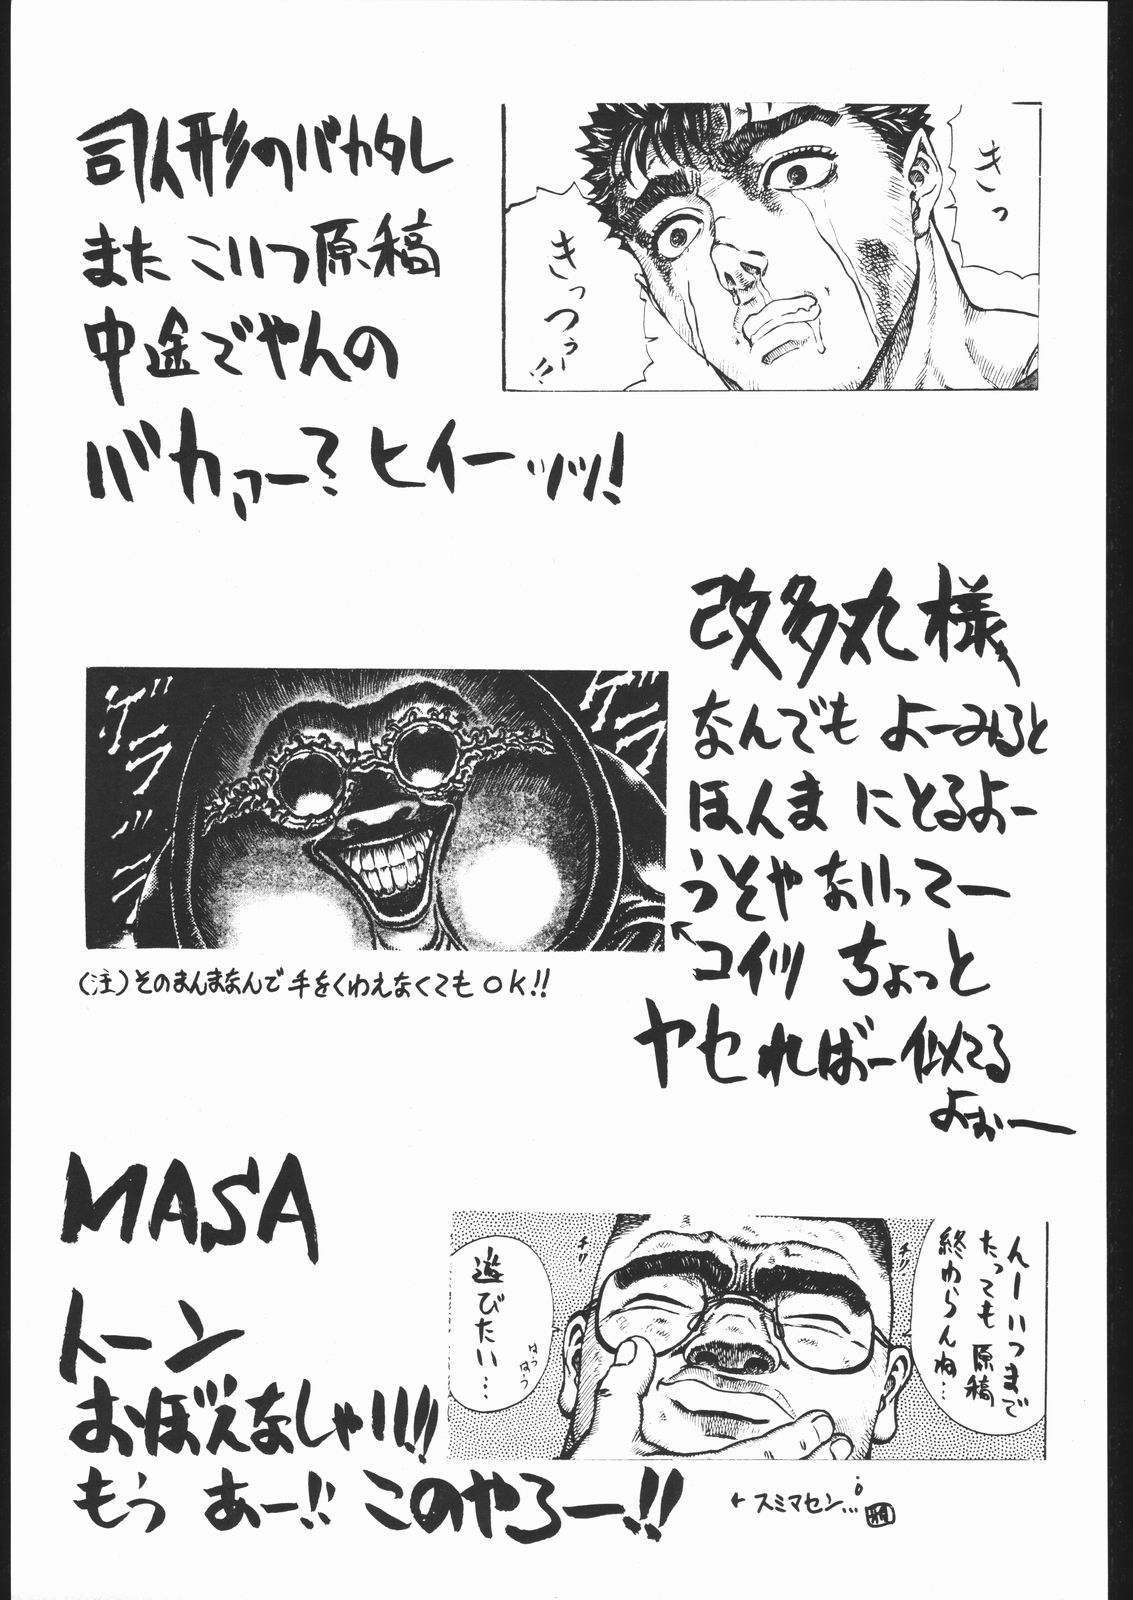 司人形のバカタレ
また こいつ原稿
中途でやんの
バカァー? ヒイーッツ!
きっ
きっつぅー!!
改多丸様
なんでも よーみると
ほんま にとるよー
うそやないってー
コイツ ちょっと
ヤセればー似てる
よぉー
ゲラゲラ
ゲラゲラ
(注)そのまんまなんで手をくわえなくてもOK!!
MASA
トーン
おぼえなしゃい!!
もう あー!! このやろー!!
んーいつまで
たっても原稿
終わらんね…
遊びたい…
はぅはぅ
チリ
チリ
←スミマセン…